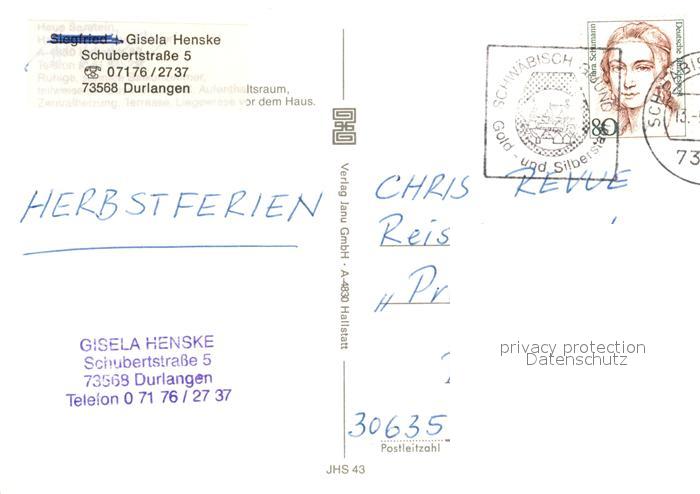 Siegfried + Gisela Henske
Schubertstraße 5
☎ 07176/2737
73568 Durlangen
ltsraum,
Zentralheizung, Terrasse, Liegewiese vor dem Haus.
HERBSTFERIEN
GISELA HENSKE
Schubertstraße 5
73568 Durlangen
Telefon 0 71 76 / 27 37
Verlag Janu GmbH · A-4830 Hallstatt
JHS 43
Clara Schumann
Deutsche Bundespost
80
SCHWÄBISCH GMÜND
Gold- und Silbersta
SCHWÄBIS
13.-
73
CHRIS REVUE
Reis
„Pr
30635
Postleitzahl
privacy protection
Datenschutz